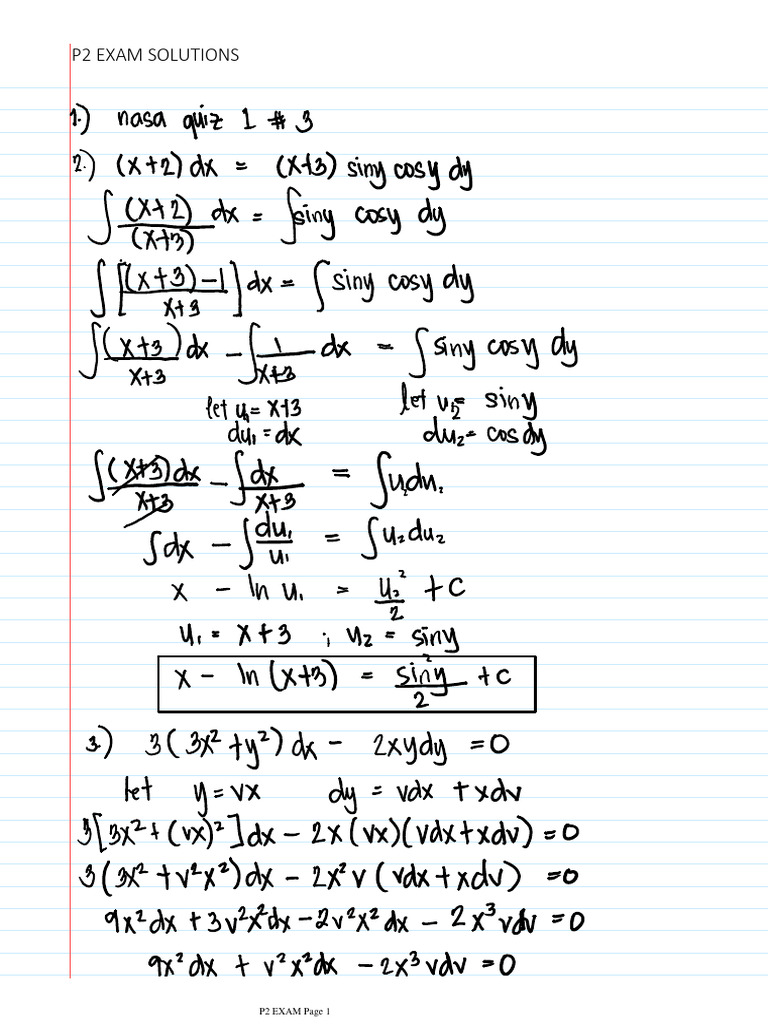 P2 EXAM SOLUTIONS
1.) nasa quiz 1 # 3
2.) (x+2) dx = (x+3) siny cosy dy
∫ (x+2)/(x+3) dx = ∫ siny cosy dy
∫ [(x+3)-1 / x+3] dx = ∫ siny cosy dy
∫ (x+3)/x+3 dx - ∫ 1/x+3 dx = ∫ siny cosy dy
let u₁ = x+3 let u₂ = siny
du₁ = dx du₂ = cosdy
∫ (x+3)dx/x+3 - ∫ dx/x+3 = ∫ u₂du₂
∫ dx - ∫ du₁/u₁ = ∫ u₂du₂
x - ln u₁ = u₂²/2 + C
u₁ = x+3 ; u₂ = siny
x - ln (x+3) = sin²y/2 + C
3.) 3(3x² + y²) dx - 2xydy = 0
let y = vx dy = vdx + xdv
3[3x² + (vx)²]dx - 2x(vx)(vdx + xdv) = 0
3(3x² + v²x²)dx - 2x²v(vdx + xdv) = 0
9x²dx + 3v²x²dx - 2v²x²dx - 2x³vdv = 0
9x²dx + v²x²dx - 2x³vdv = 0
P2 EXAM Page 1